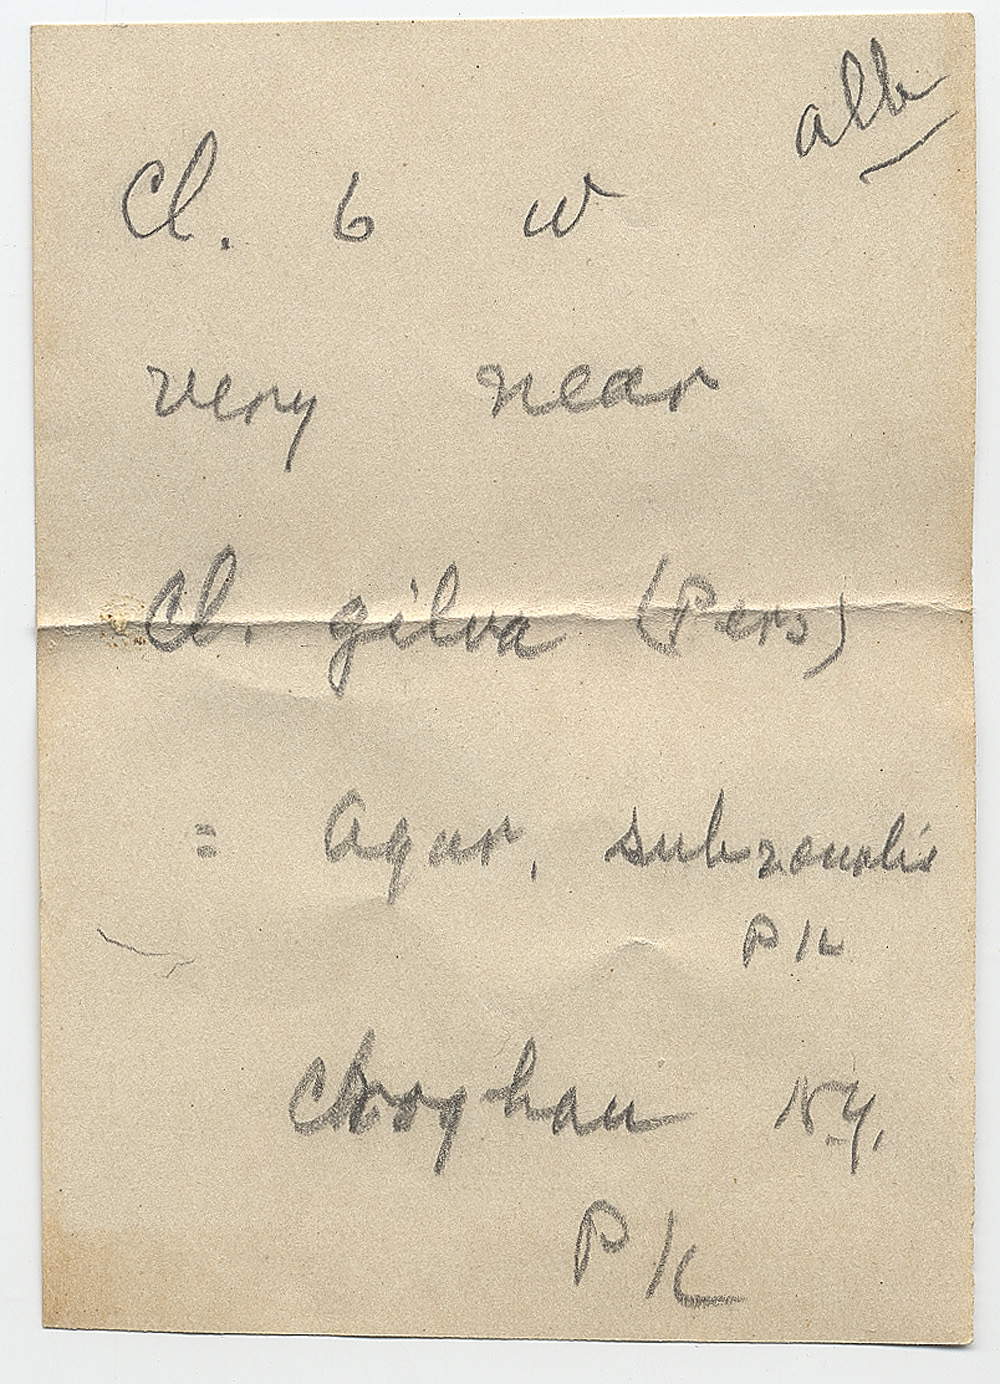 alb
Cl. 6 w
very near
Cl. gilva (Pers)
= Agar. subzonalis
Pk
Croghan N.Y.
Pk